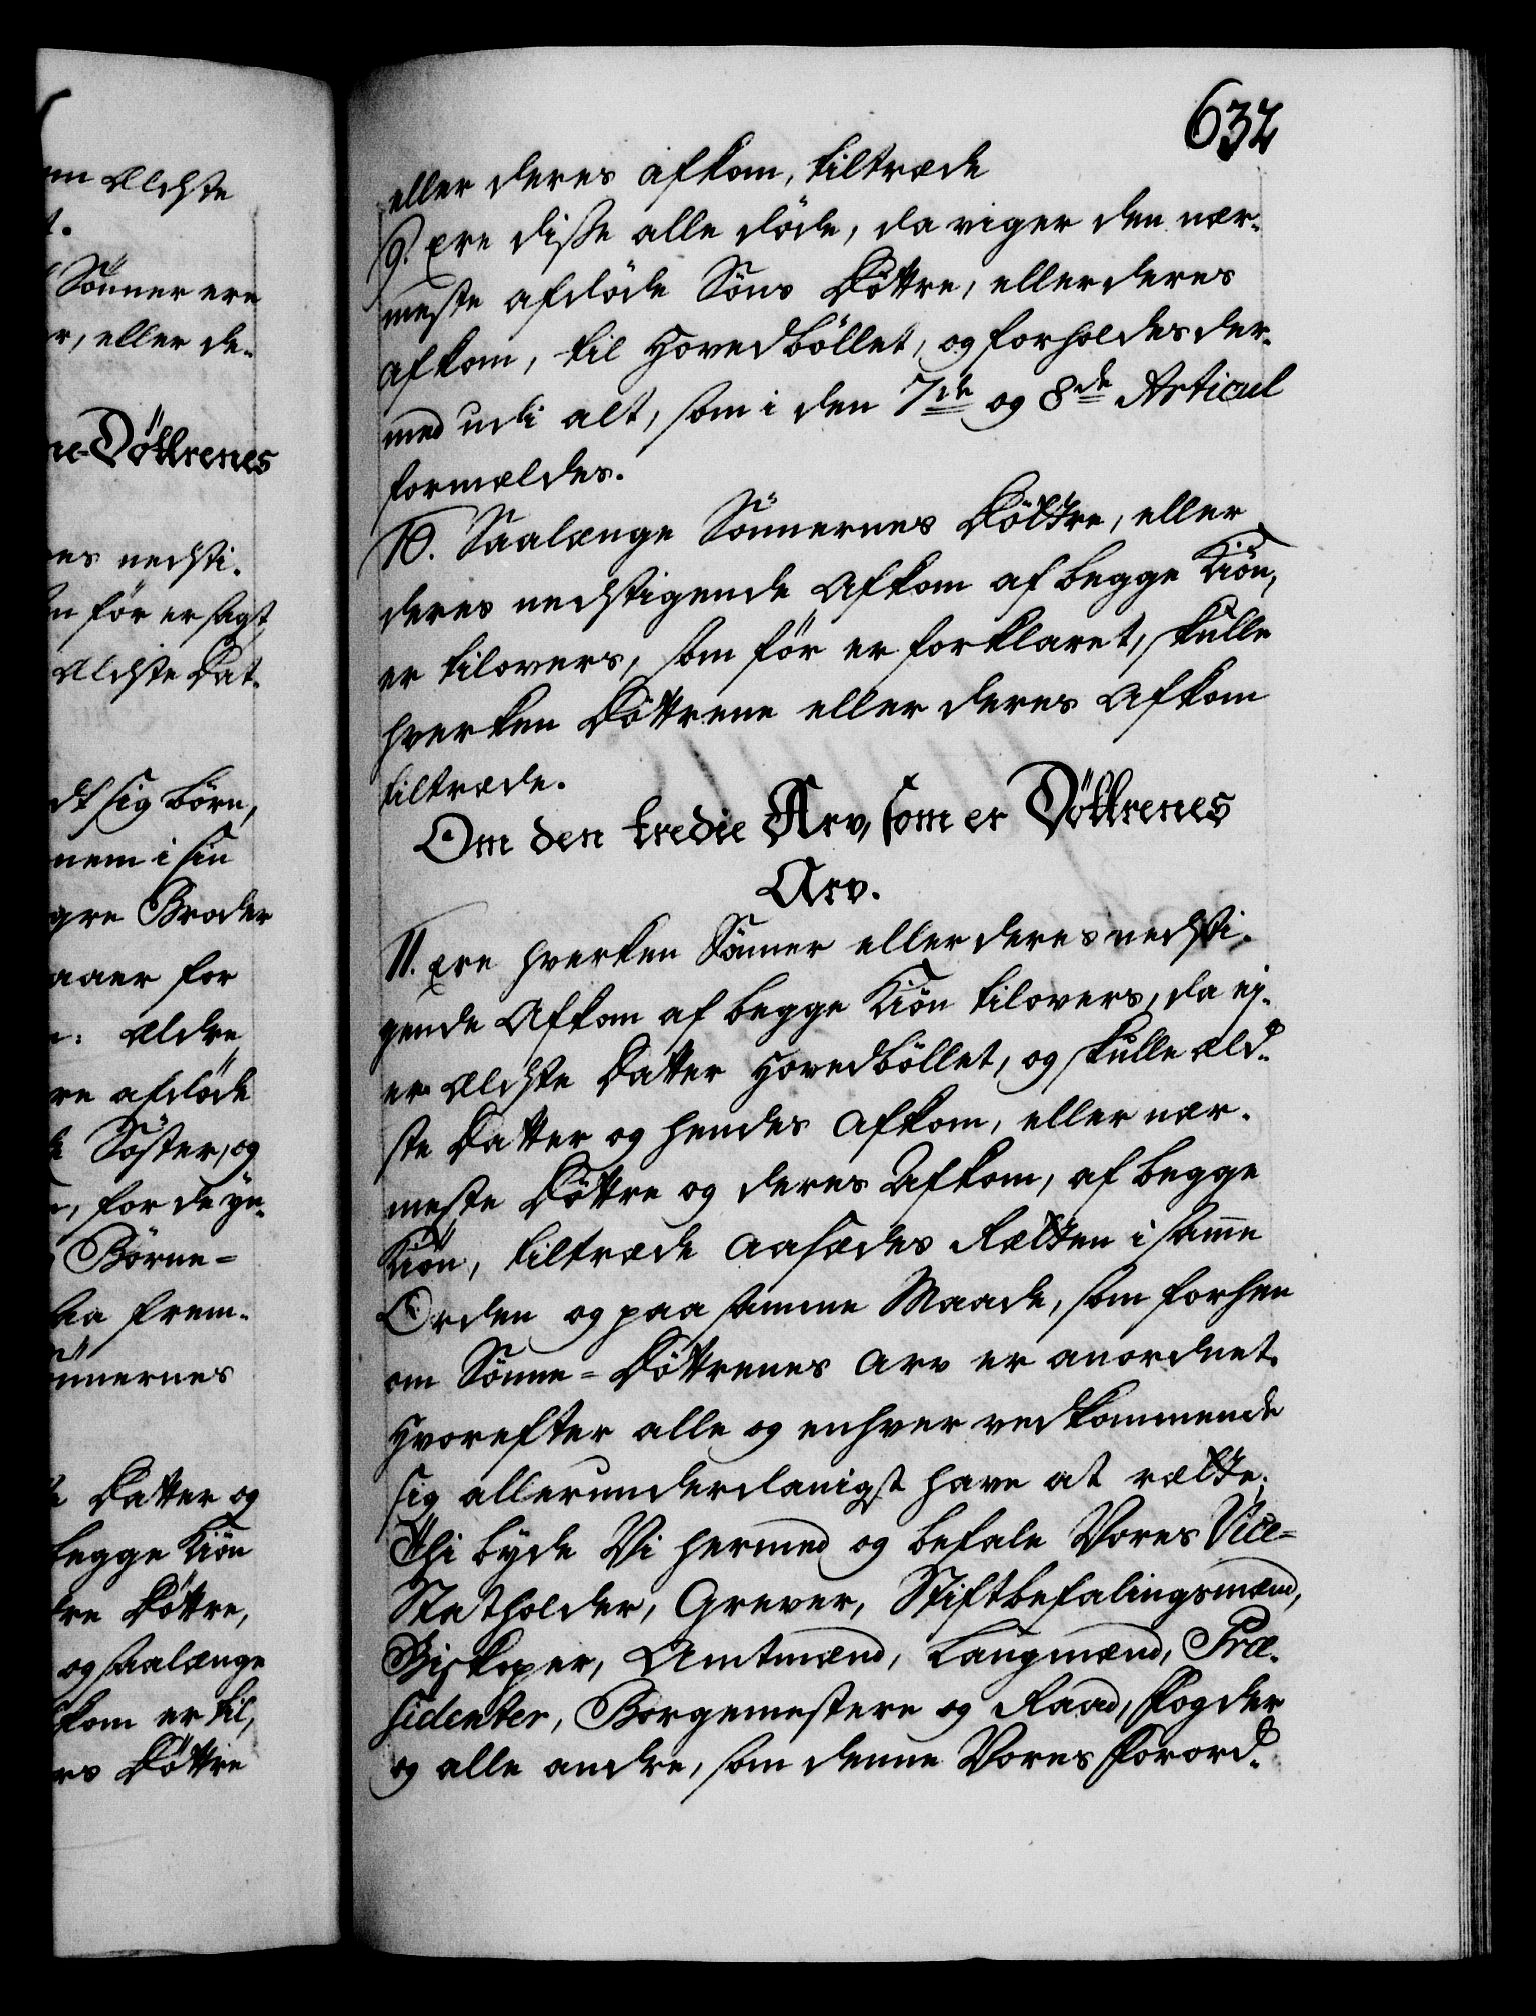 632
eller deres afkom, tiltræde
9. Ere disse alle döde, da viger den nær-
meste afdöde Söns Döttre, eller deres
afkom, til Hovedböllet, og forholdes der-
med udi alt, som i den 7de og 8de Articul
formeldes.
10. Saalænge Sönnernes Döttre, eller
deres nedstigende Afkom af begge Kiön,
er tilovers, som för er forklaret, skulle
hverken Döttrene eller deres Afkom
tiltræde.
Om den tredie Arv, som er Döttrenes
Arv.
11. Ere hverken Sönner eller deres nedsti-
gende Afkom af begge Kiön tilovers, da ej-
er Ældste Datter Hovedböllet, og skulle æld-
ste Datter og hendes Afkom, eller nær-
meste Döttre og deres Afkom, af begge
Kiön, tiltræde Aasædes Retten i samme
Orden og paa samme Maade, som forhen
om Sönne-Döttrenes Arv er anordnet.
Hvorefter alle og enhver vedkommende
sig allerunderdanigst have at rette.
Thi byde Vi hermed og befale Vores Vice-
Statholder, Grever, Stiftbefalingsmænd,
Biskoper, Amtmænd, Laugmænd, Præ-
sidenter, Borgemestere og Raad, Fogder
og alle andre, som denne Vores Forord-
en Ældste
Sönner ere
r, eller de-
ne-Döttrenes
es nedsti-
n för er sagt
Ældste Dat-
dt sig börn,
nem i sin
gre Broder
aaer for
Ældre
re afdöde
Söster, og
, for de yn-
Börne-
aa frem-
önnernes
Datter og
begge Kiön
dre Döttre,
og saalænge
fkom er til,
rs Döttre